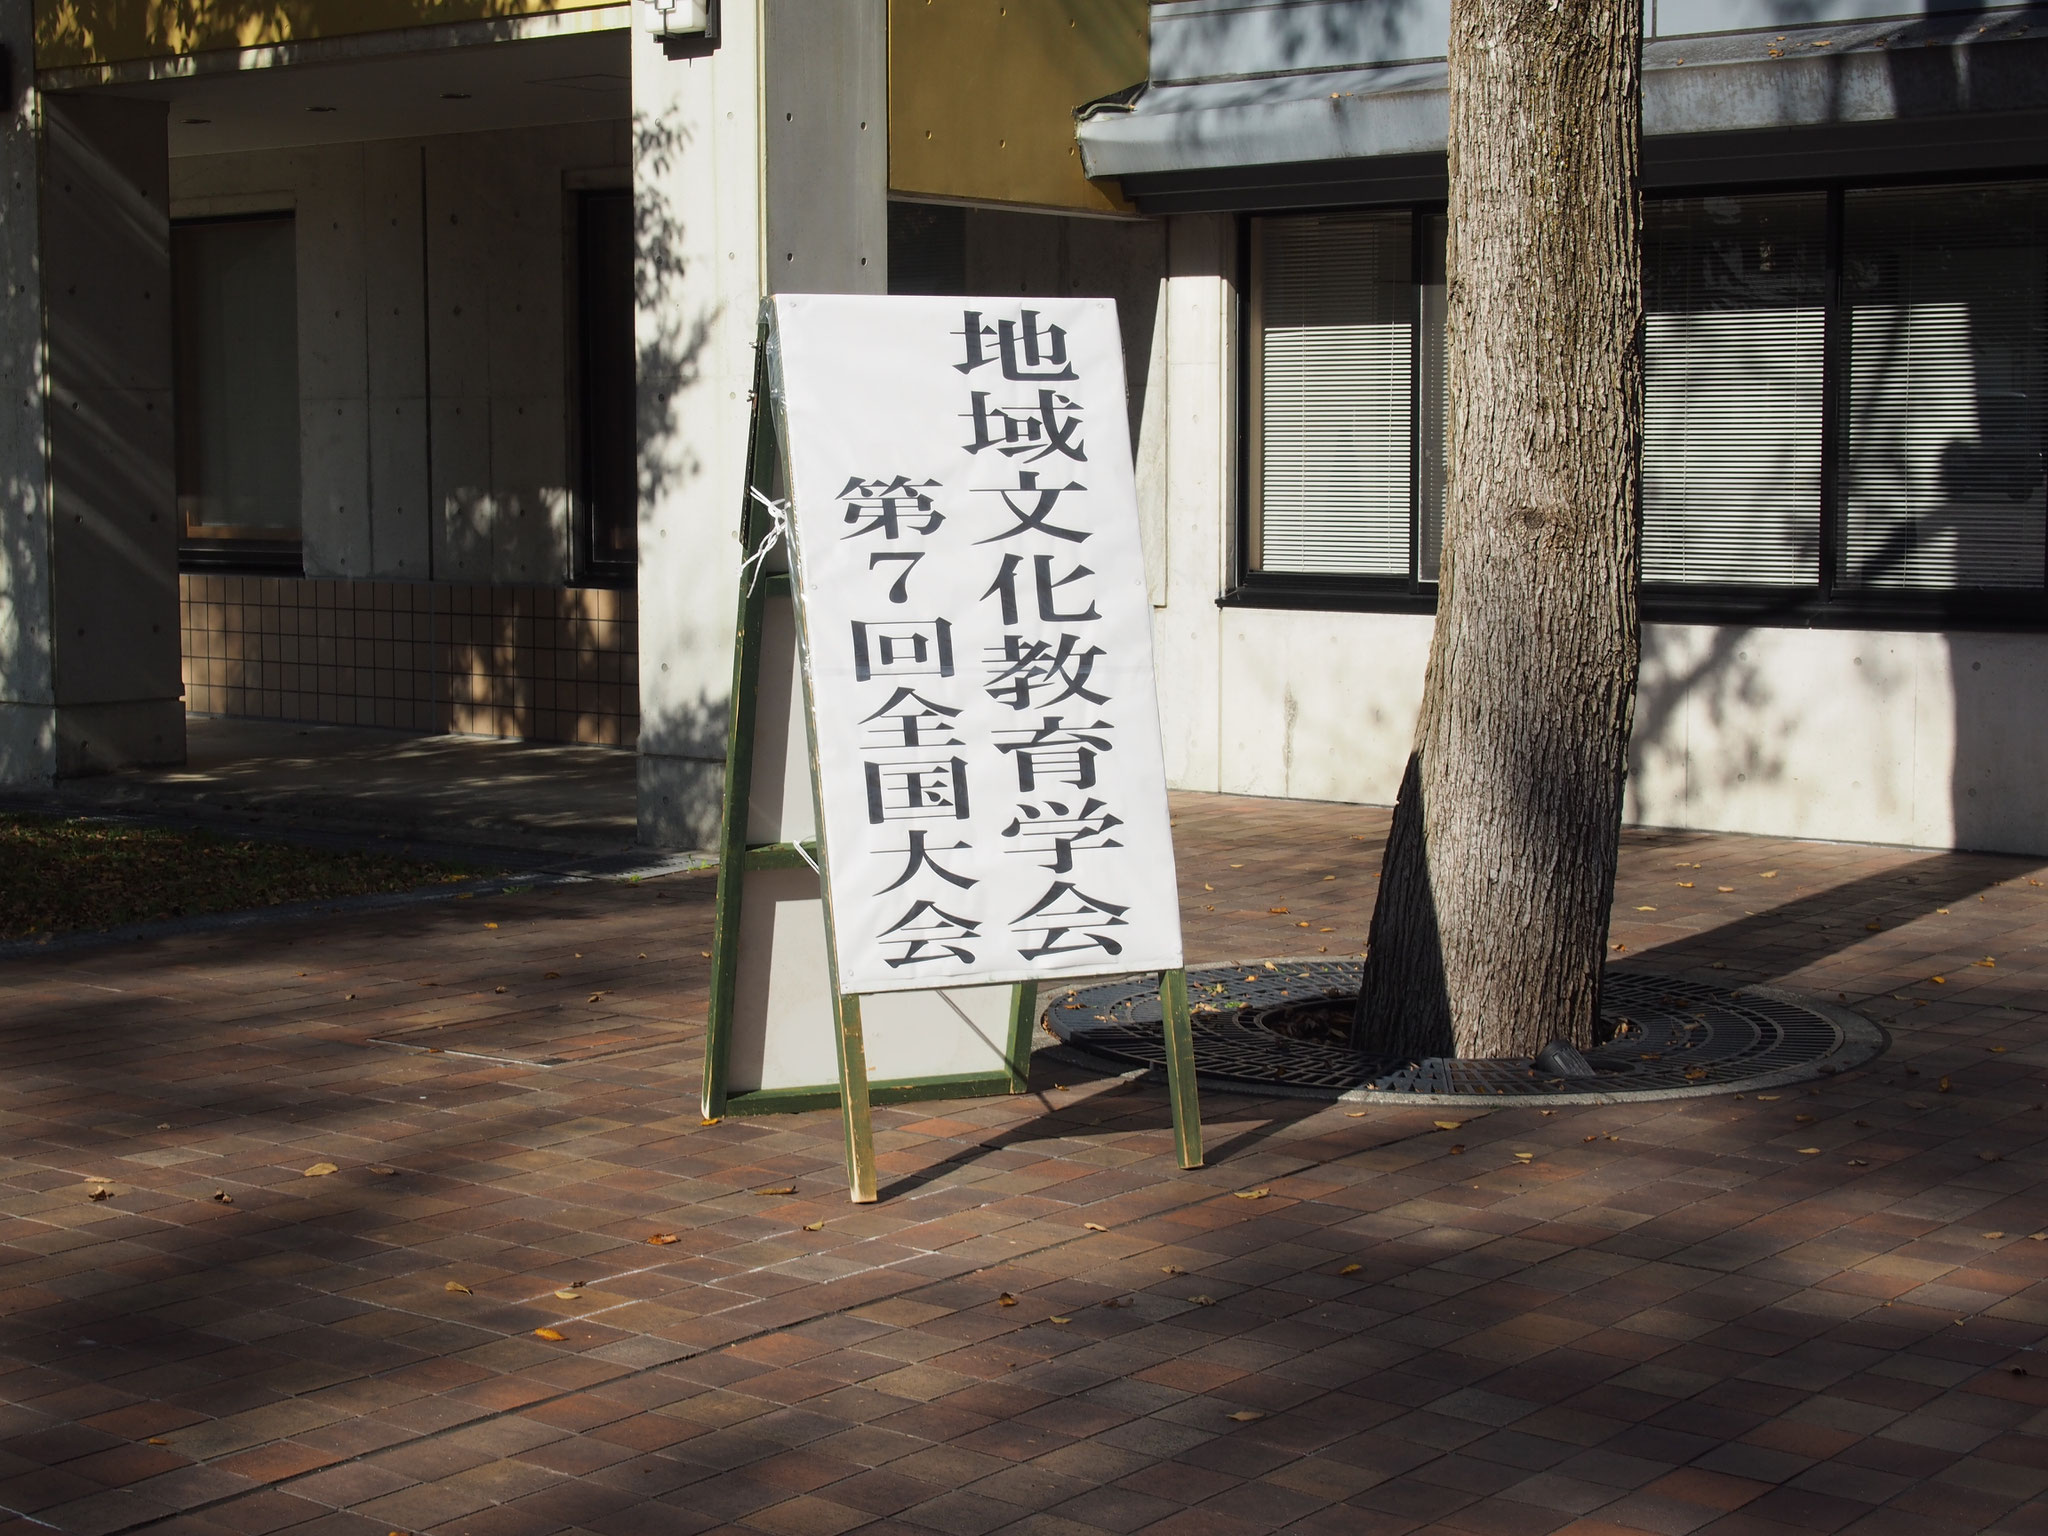 地域文化教育学会
第7回全国大会